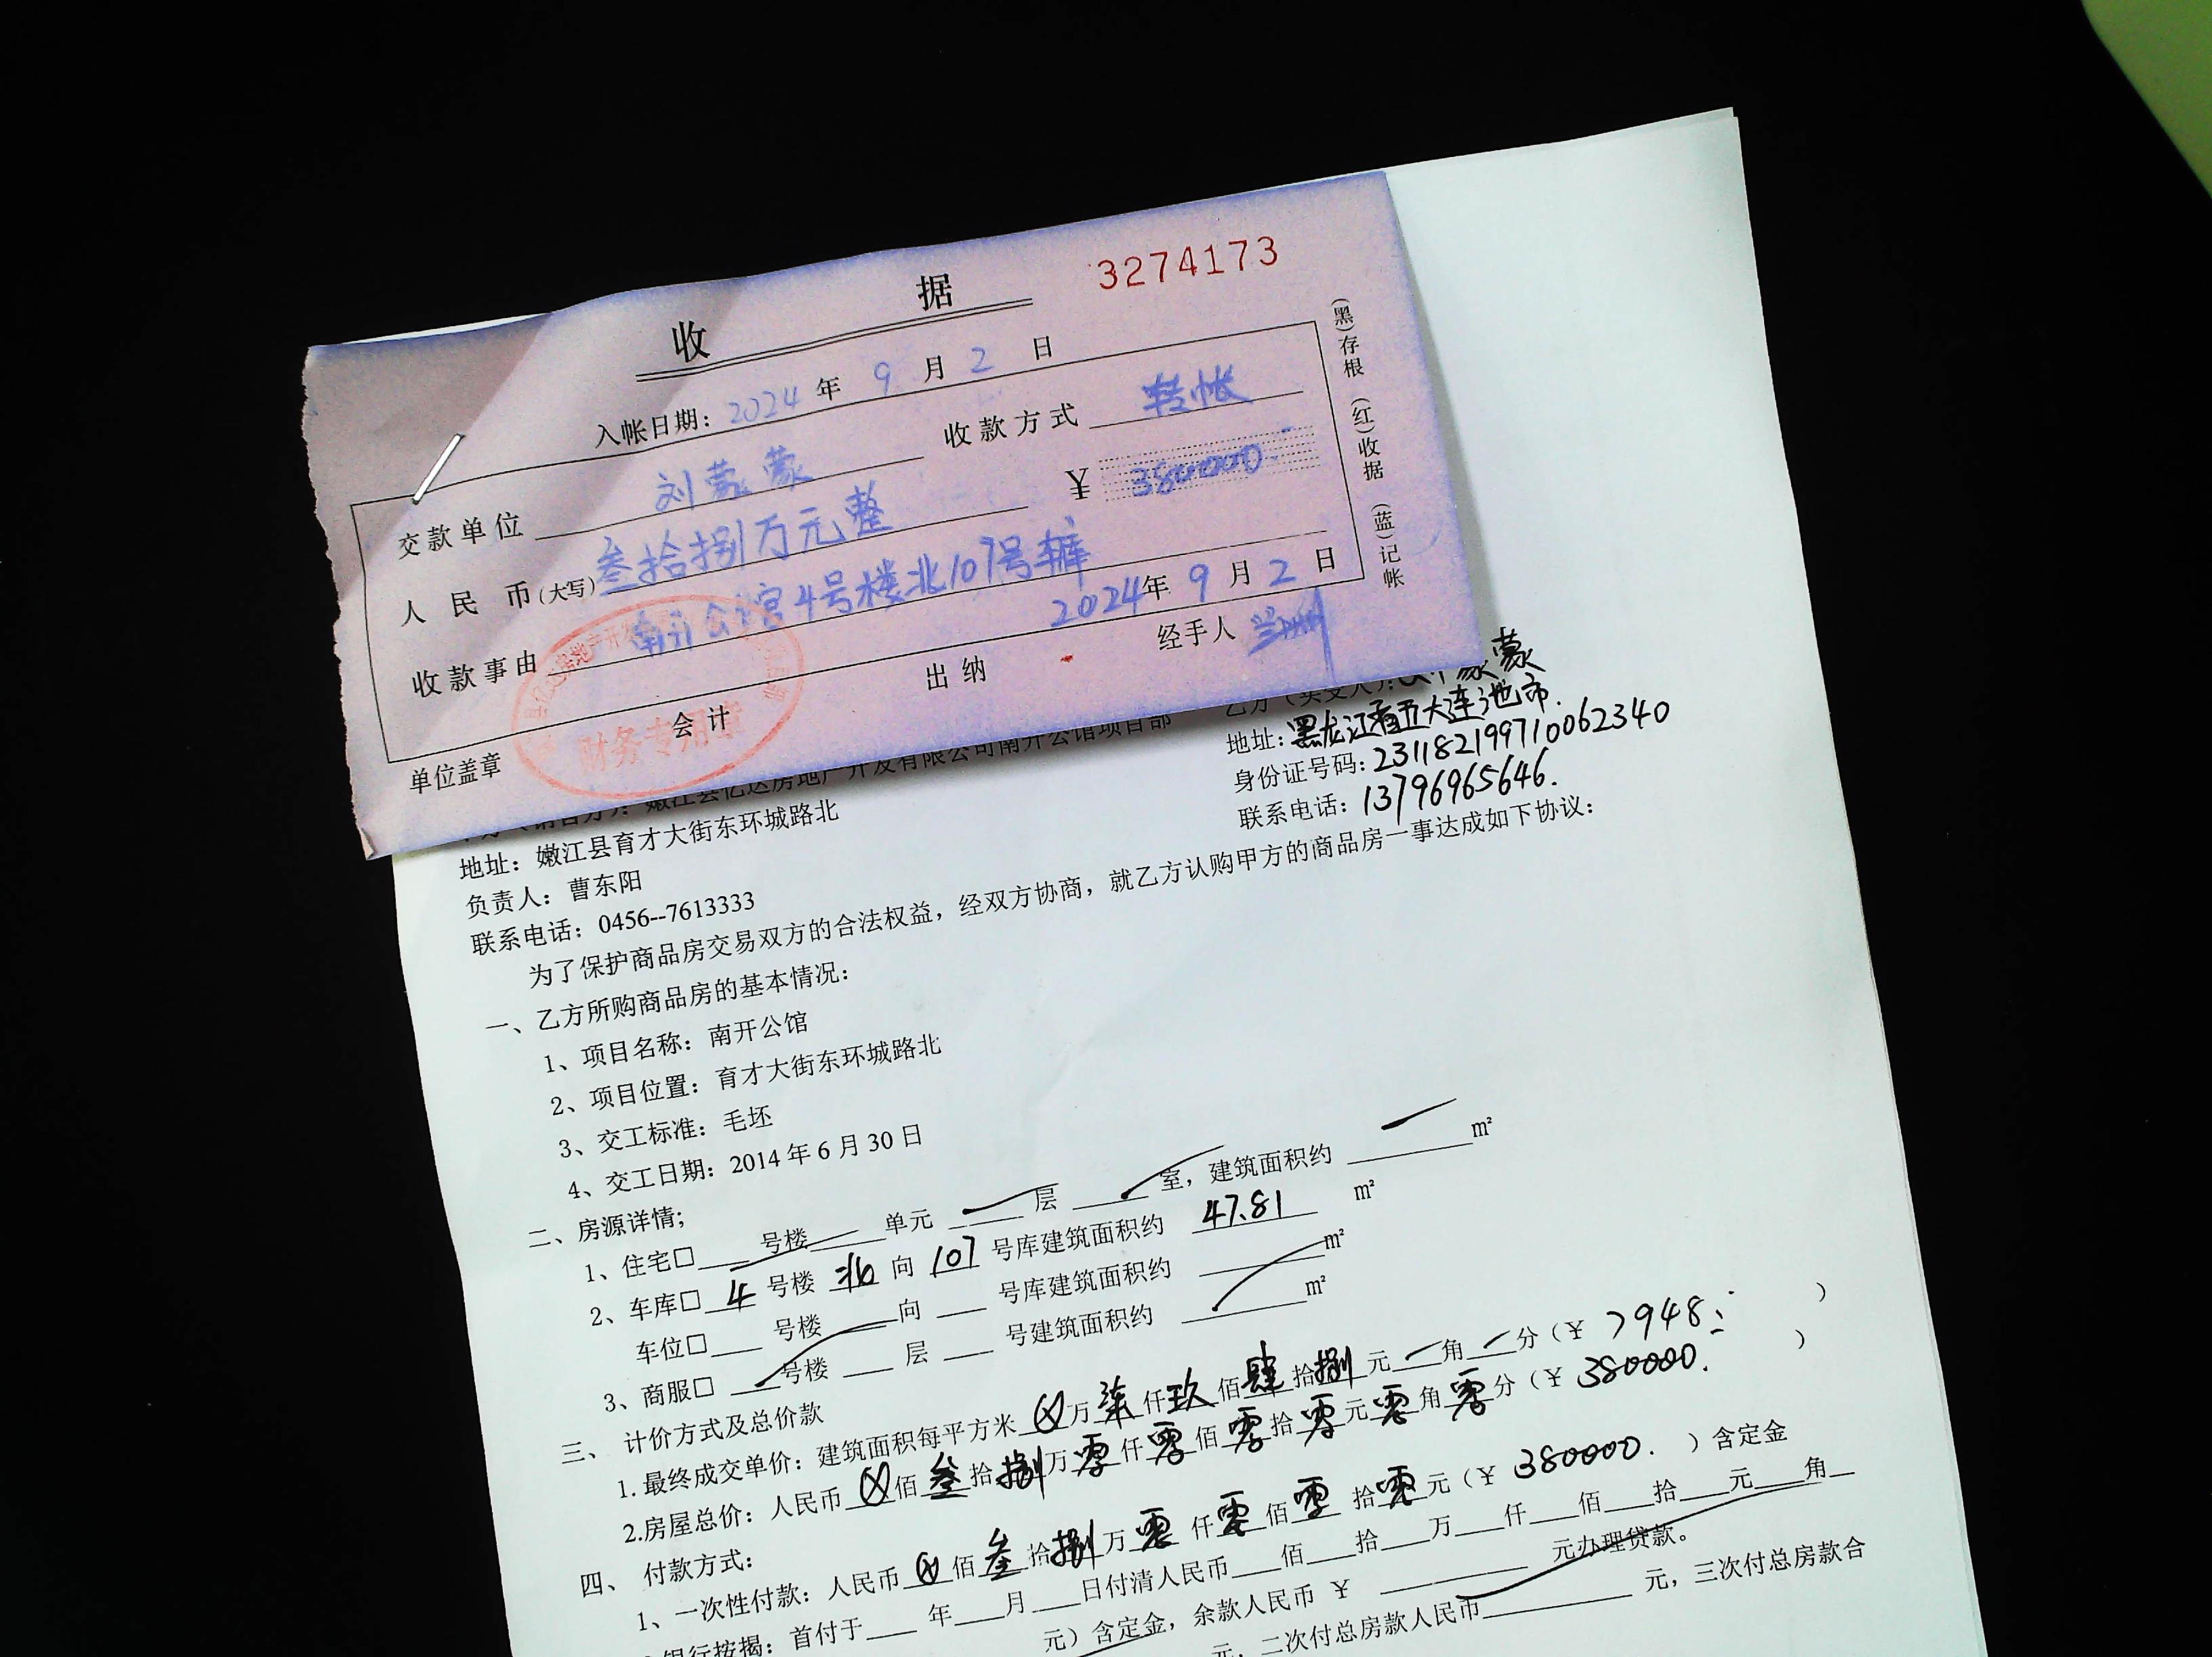 收 据 3274173
入帐日期：2024 年 9 月 2 日
交款单位 刘蒙蒙 收款方式 转帐
人民币(大写) 叁拾捌万元整 ¥ 380000.
收款事由 南开公馆4号楼北107号车库
2024年 9 月 2 日
单位盖章 会计 出纳 经手人
财务专用章
(黑)存根 (红)收据 (蓝)记帐
嫩江县亿达房地产开发有限公司南开公馆项目部
地址：嫩江县育才大街东环城路北
负责人：曹东阳
联系电话：0456--7613333
乙方（买受人）： 蒙蒙
地址：黑龙江省五大连池市.
身份证号码：231182199710062340
联系电话：13796965646.
为了保护商品房交易双方的合法权益，经双方协商，就乙方认购甲方的商品房一事达成如下协议：
一、乙方所购商品房的基本情况：
1、项目名称：南开公馆
2、项目位置：育才大街东环城路北
3、交工标准：毛坯
4、交工日期：2014 年 6 月 30 日
二、房源详情;
1、住宅□____号楼____单元____层____室，建筑面积约____m²
2、车库□ 4 号楼 北 向 107 号库建筑面积约 47.81 m²
车位□____号楼____向____号库建筑面积约____m²
3、商服□____号楼____层____号建筑面积约____m²
三、 计价方式及总价款
1.最终成交单价：建筑面积每平方米 ⊗ 万 柒 仟 玖 佰 肆 拾 捌 元 角 分（¥ 7948 ）
2.房屋总价：人民币 ⊗ 佰 叁 拾 捌 万 零 仟 零 佰 零 拾 零 元 零 角 零 分（¥ 380000. ）
四、 付款方式：
1、一次性付款：人民币 ⊗ 佰 叁 拾 捌 万 零 仟 零 佰 零 拾 零 元（¥ 380000. ）含定金
银行按揭：首付于____年____月____日付清人民币____佰____拾____万____仟____佰____拾____元____角
元）含定金，余款人民币 ¥ ____元办理贷款。
元，二次付总房款人民币____元，三次付总房款合